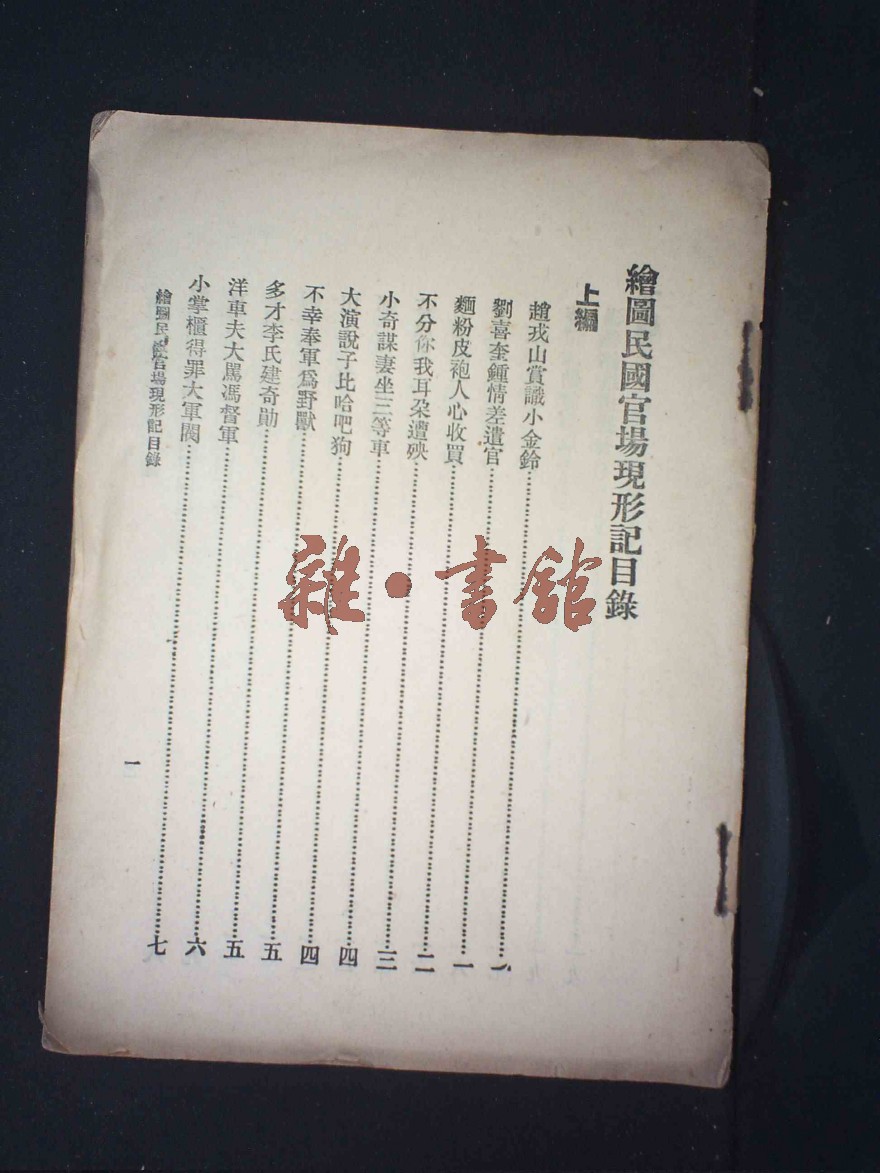 繪圖民國官場現形記目錄
上編
趙戎山賞識小金鈴……一
劉喜奎鍾情差遣官……一
麵粉皮袍人心收買……二
不分你我耳朶遭殃……三
小奇謀妻坐三等車……四
大演說子比哈吧狗……四
不幸奉軍爲野獸……五
多才李氏建奇勛……五
洋車夫大罵馮督軍……六
小掌櫃得罪大軍閥……七
繪圖民國官場現形記目錄
一
雜·書館